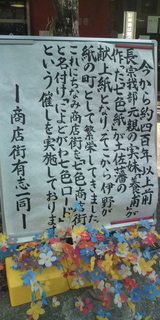 今から約四百年以上前
長宗我部元親の実妹「養甫」が
作った七色紙が土佐藩の
献上紙となり、そこから伊野が
紙の町として繁栄してきました
これにちなみ商店街を七色商店街
と名付け「こよどが七色ロード」
という催しを実施しております
ー商店街有志一同ー